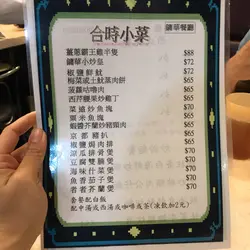 合時小菜
鏞華餐廳
薑蔥霸王雞半隻 $88
鏞華小炒皇 $70
椒鹽鮮魷 $65
梅菜或土魷蒸肉餅 $65
菠蘿咕嚕肉 $65
西芹腰果炒雞丁 $65
菜遠炒魚塊 $65
粟米魚塊 $65
蝦醬芥蘭炒豬頸肉 $65
京都豬扒 $65
椒鹽焗肉排 $65
涼瓜排骨煲 $70
豆腐雙腩煲 $70
海味什菜煲 $70
魚香茄子煲 $70
啫啫芥蘭煲 $70
套餐配白飯
配中湯或西湯或咖啡或茶(凍飲加2元)